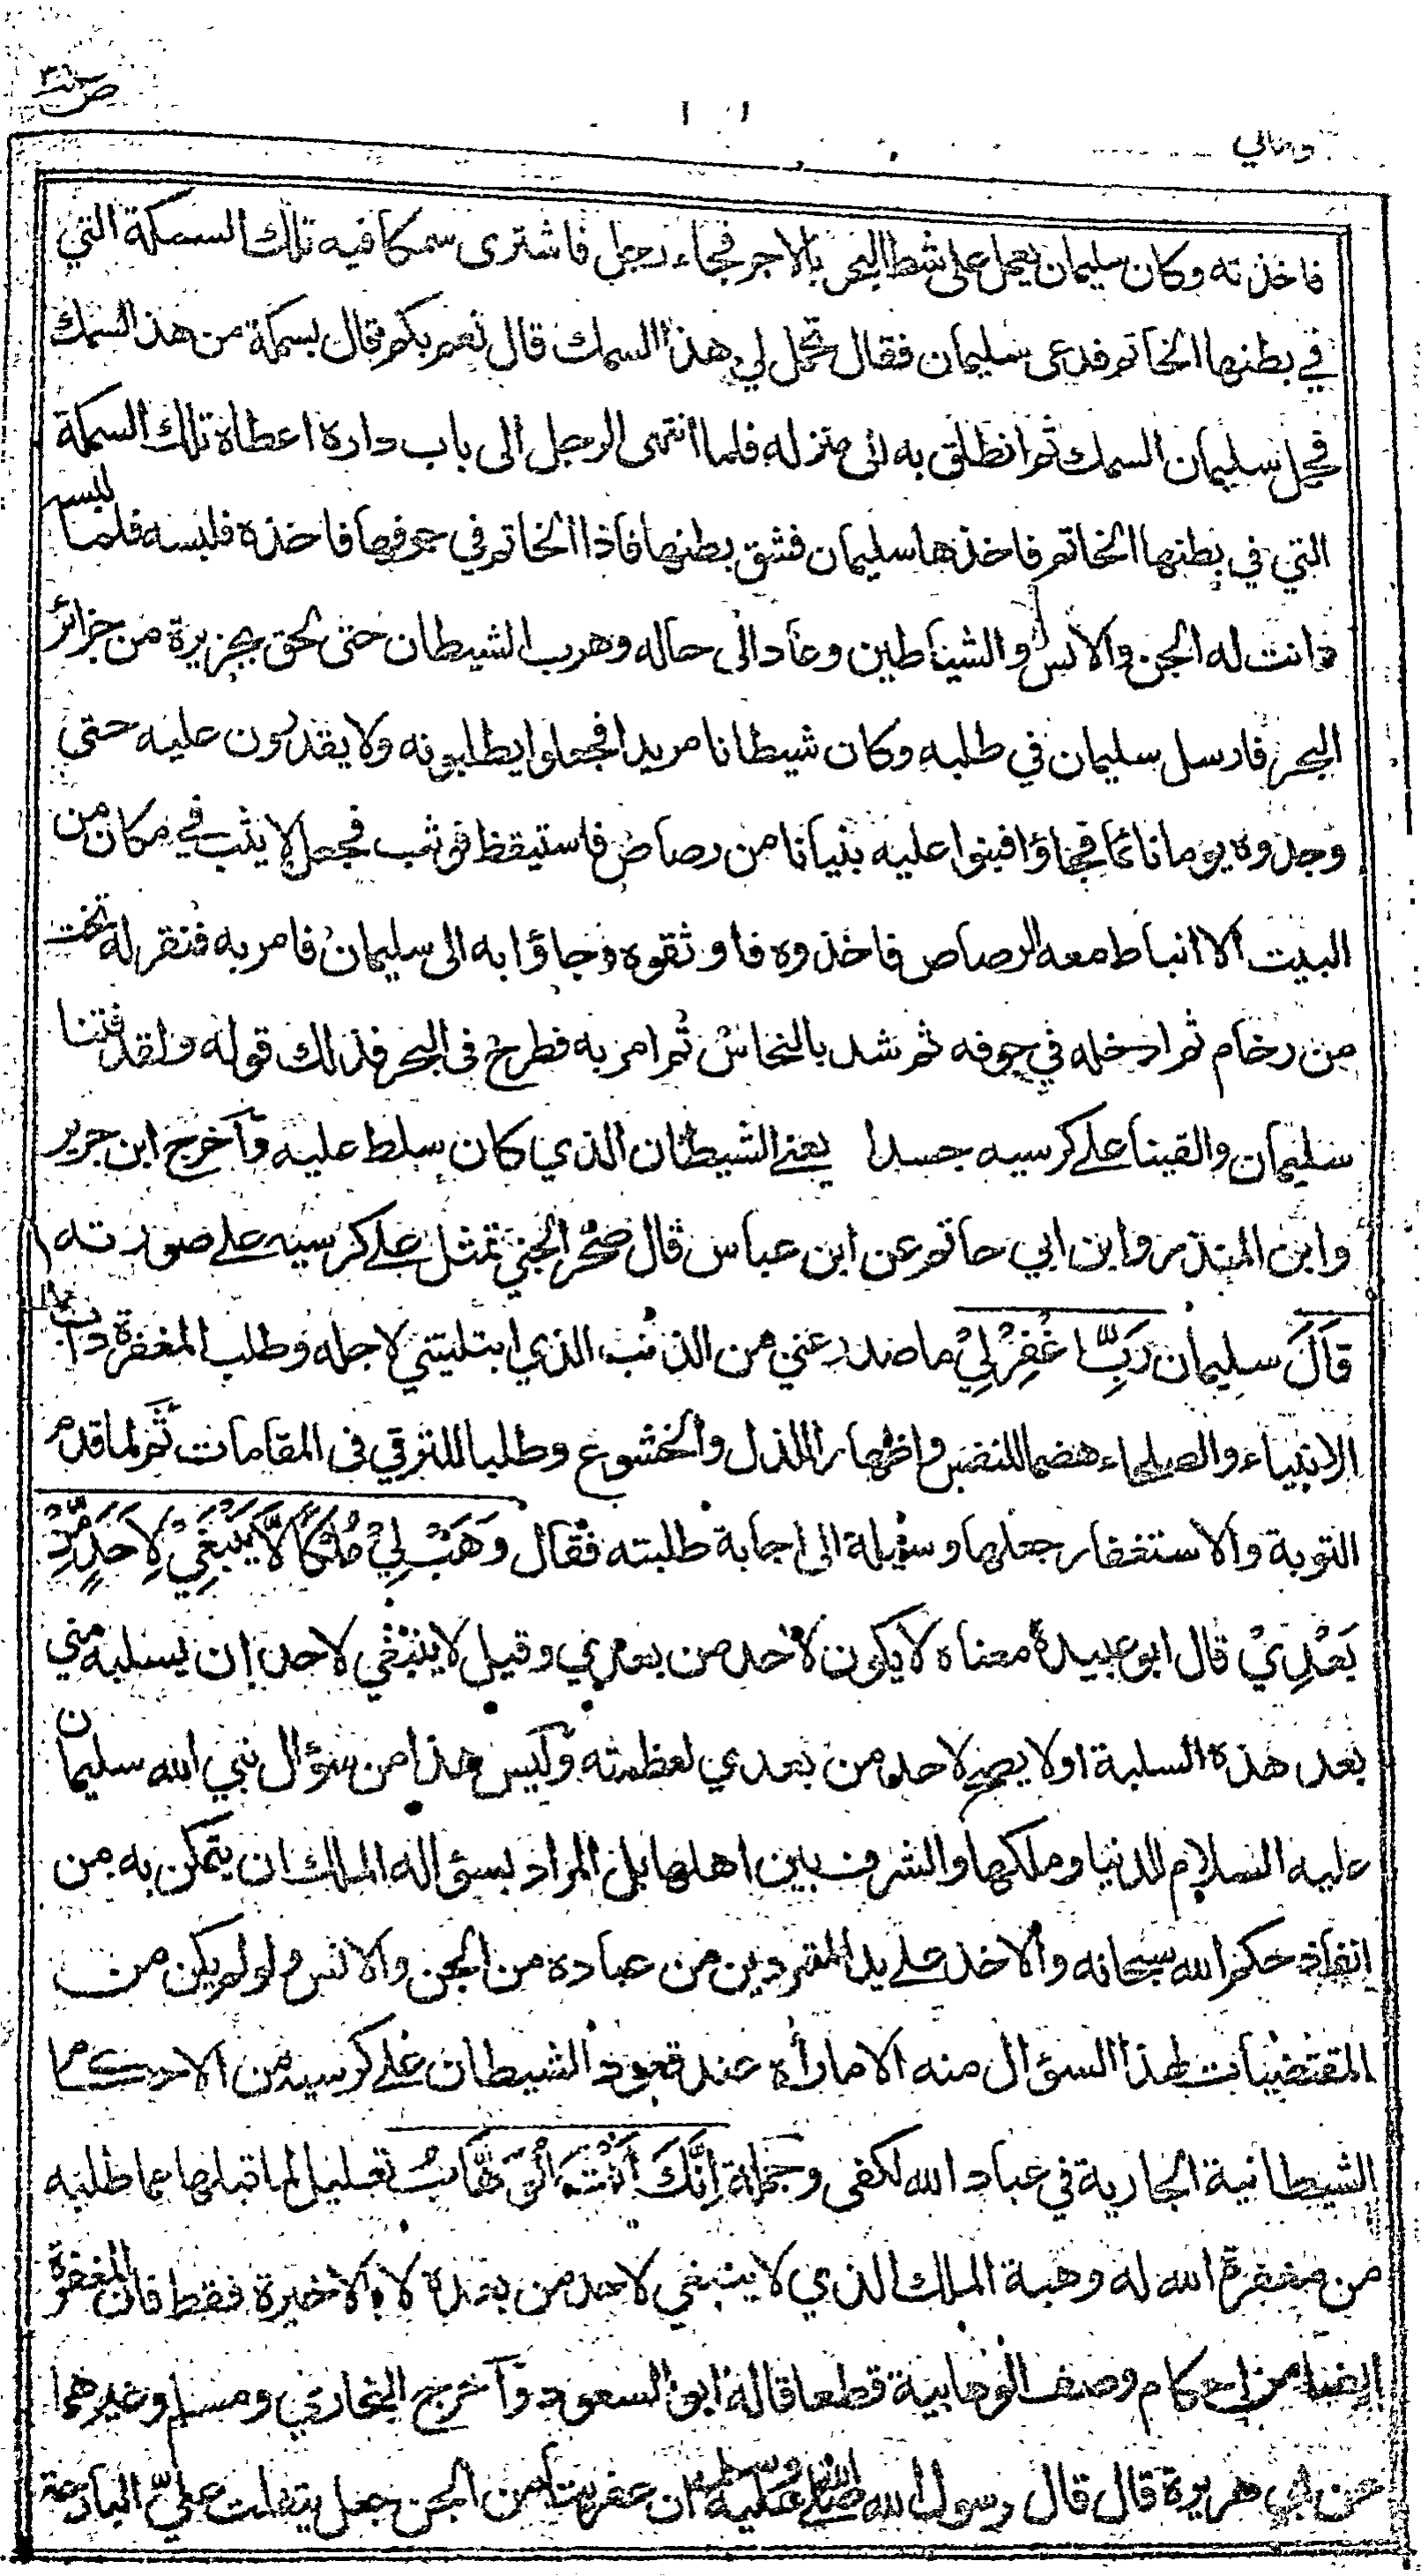 ص
ومالي
فاخذته وكان سليمان يعمل على شط البحر بالاجر فجاء رجل فاشترى سمكا فيه تلك السمكة التي
في بطنها الخاتم فدعى سليمان فقال تحمل لي هذا السمك قال نعم بكم قال بسمكة من هذا السمك
فحمل سليمان السمك ثم انطلق به الى منزله فلما انتهى الرجل الى باب داره اعطاه تلك السمكة
التي في بطنها الخاتم فاخذها سليمان فشق بطنها فاذا الخاتم في جوفها فاخذه فلبسه فلما لبسه
دانت له الجن والانس والشياطين وعاد الى حاله وهرب الشيطان حتى لحق بجزيرة من جزائر
البحر فارسل سليمان في طلبه وكان شيطانا مريدا فجعلوا يطلبونه ولا يقدرون عليه حتى
وجدوه يوما نائما فجاؤا فبنوا عليه بنيانا من رصاص فاستيقظ فوثب فجعل لا يثب في مكان من
البيت الا انباط معه الرصاص فاخذوه فاوثقوه وجاؤا به الى سليمان فامر به فنقر له تخت
من رخام ثم ادخله في جوفه ثم شد بالنحاس ثم امر به فطرح في البحر فذلك قوله ولقد فتنا
سليمان والقينا على كرسيه جسدا يعني الشيطان الذي كان سلط عليه وآخرج ابن جرير
وابن المنذر وابن ابي حاتم عن ابن عباس قال صخر الجني تمثل على كرسيه على صورته
قَالَ سليمان رَبِّ اغْفِرْ لِيْ ما صدر عني من الذنب الذي ابتليتني لاجله وطلب المغفرة داب
الانبياء والصلحاء هضما للنفس واظهارا للذل والخشوع وطلبا للترقي في المقامات ثم لما قدم
التوبة والاستغفار جعلها وسيلة الى اجابة طلبته فقال وَهَبْ لِيْ مُلْكًا لَّا يَنْبَغِيْ لِاَحَدٍ مِّنْ
بَعْدِيْ قال ابو عبيدة معناه لا يكون لاحد من بعدي وقيل لا ينبغي لاحد ان يسلبه مني
بعد هذه السلبة اولا يصح لاحد من بعدي لعظمته وليس هذا من سؤال نبي الله سليمان
عليه السلام للدنيا وملكها والشرف بين اهلها بل المراد بسؤاله الملك ان يتمكن به من
انفاذ حكم الله سبحانه والاخذ على يد المتمردين من عباده من الجن والانس ولو لم يكن من
المقتضيات لهذا السؤال منه الا ما رأه عند قعود الشيطان على كرسيه من الاحكام
الشيطانية الجارية في عباد الله لكفى وجملة اِنَّكَ اَنْتَ الْوَهَّابُ تعليل لما قبلها مما طلبه
من مغفرة الله له وهبة الملك الذي لا ينبغي لاحد من بعده لا للاخيرة فقط فان المغفرة
ايضا من احكام وصف الوهابية قطعا قاله ابو السعود وآخرج البخاري ومسلم وغيرهما
عن ابي هريرة قال قال رسول الله صلى الله عليه وسلم ان عفريتا من الجن جعل يتفلت علي البارحة